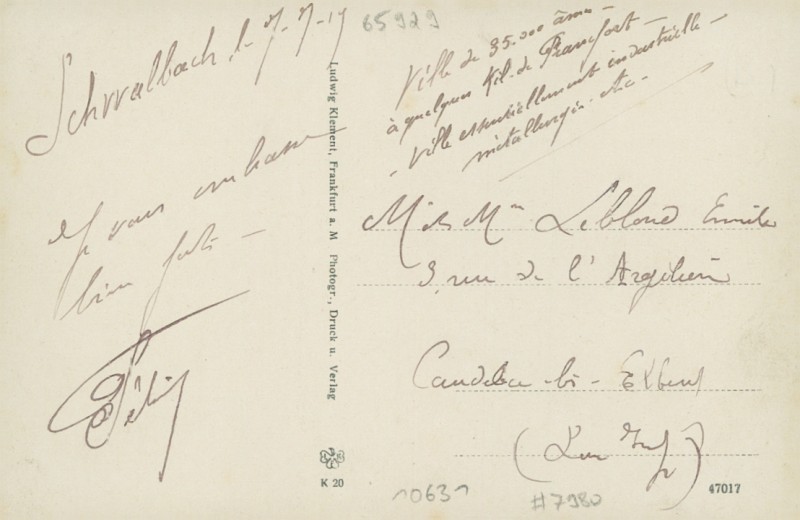 Schwalbach, l. 7-7-19
65929
Ville de 35.000 âmes -
à quelques Kil. de Francfort -
- Ville essentiellement industrielle -
métallurgie. etc -
Je vous embrasse
bien forts -
Ludwig Klement, Frankfurt a. M Photogr., Druck u. Verlag
M. et Mme Leblond Emile
3, rue de l'
Caudebec - les - Elbeuf
(Sne Infre)
K 20
10631
#7980
47017